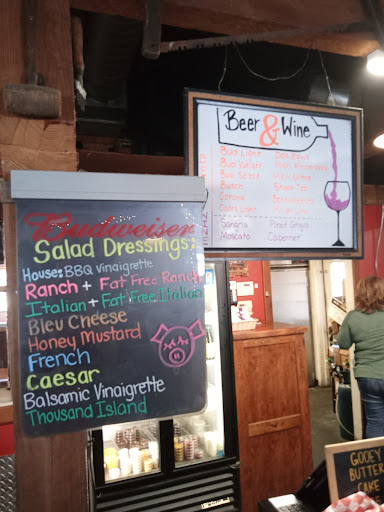 Beer & Wine
Bud Light
Budweiser
Bud Select
Busch
Corona
Coors Light
Sangria Pinot Grigio
Moscato Cabernet
Budweiser
Salad Dressings:
House: BBQ Vinaigrette
Ranch + Fat Free Ranch
Italian + Fat Free Italian
Bleu Cheese
Honey Mustard
French
Caesar
Balsamic Vinaigrette
Thousand Island
GOOEY
BUTTER
CAKE